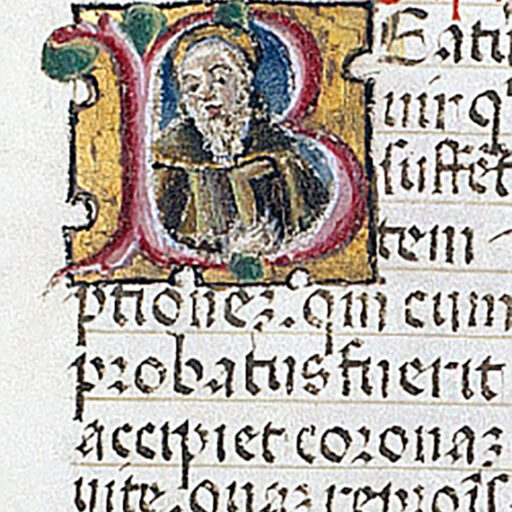 Beatus
uir q
suffert
tem
ptionez. qm cum
probatus fuerit
accipiet coronaz
uite. quaz repro